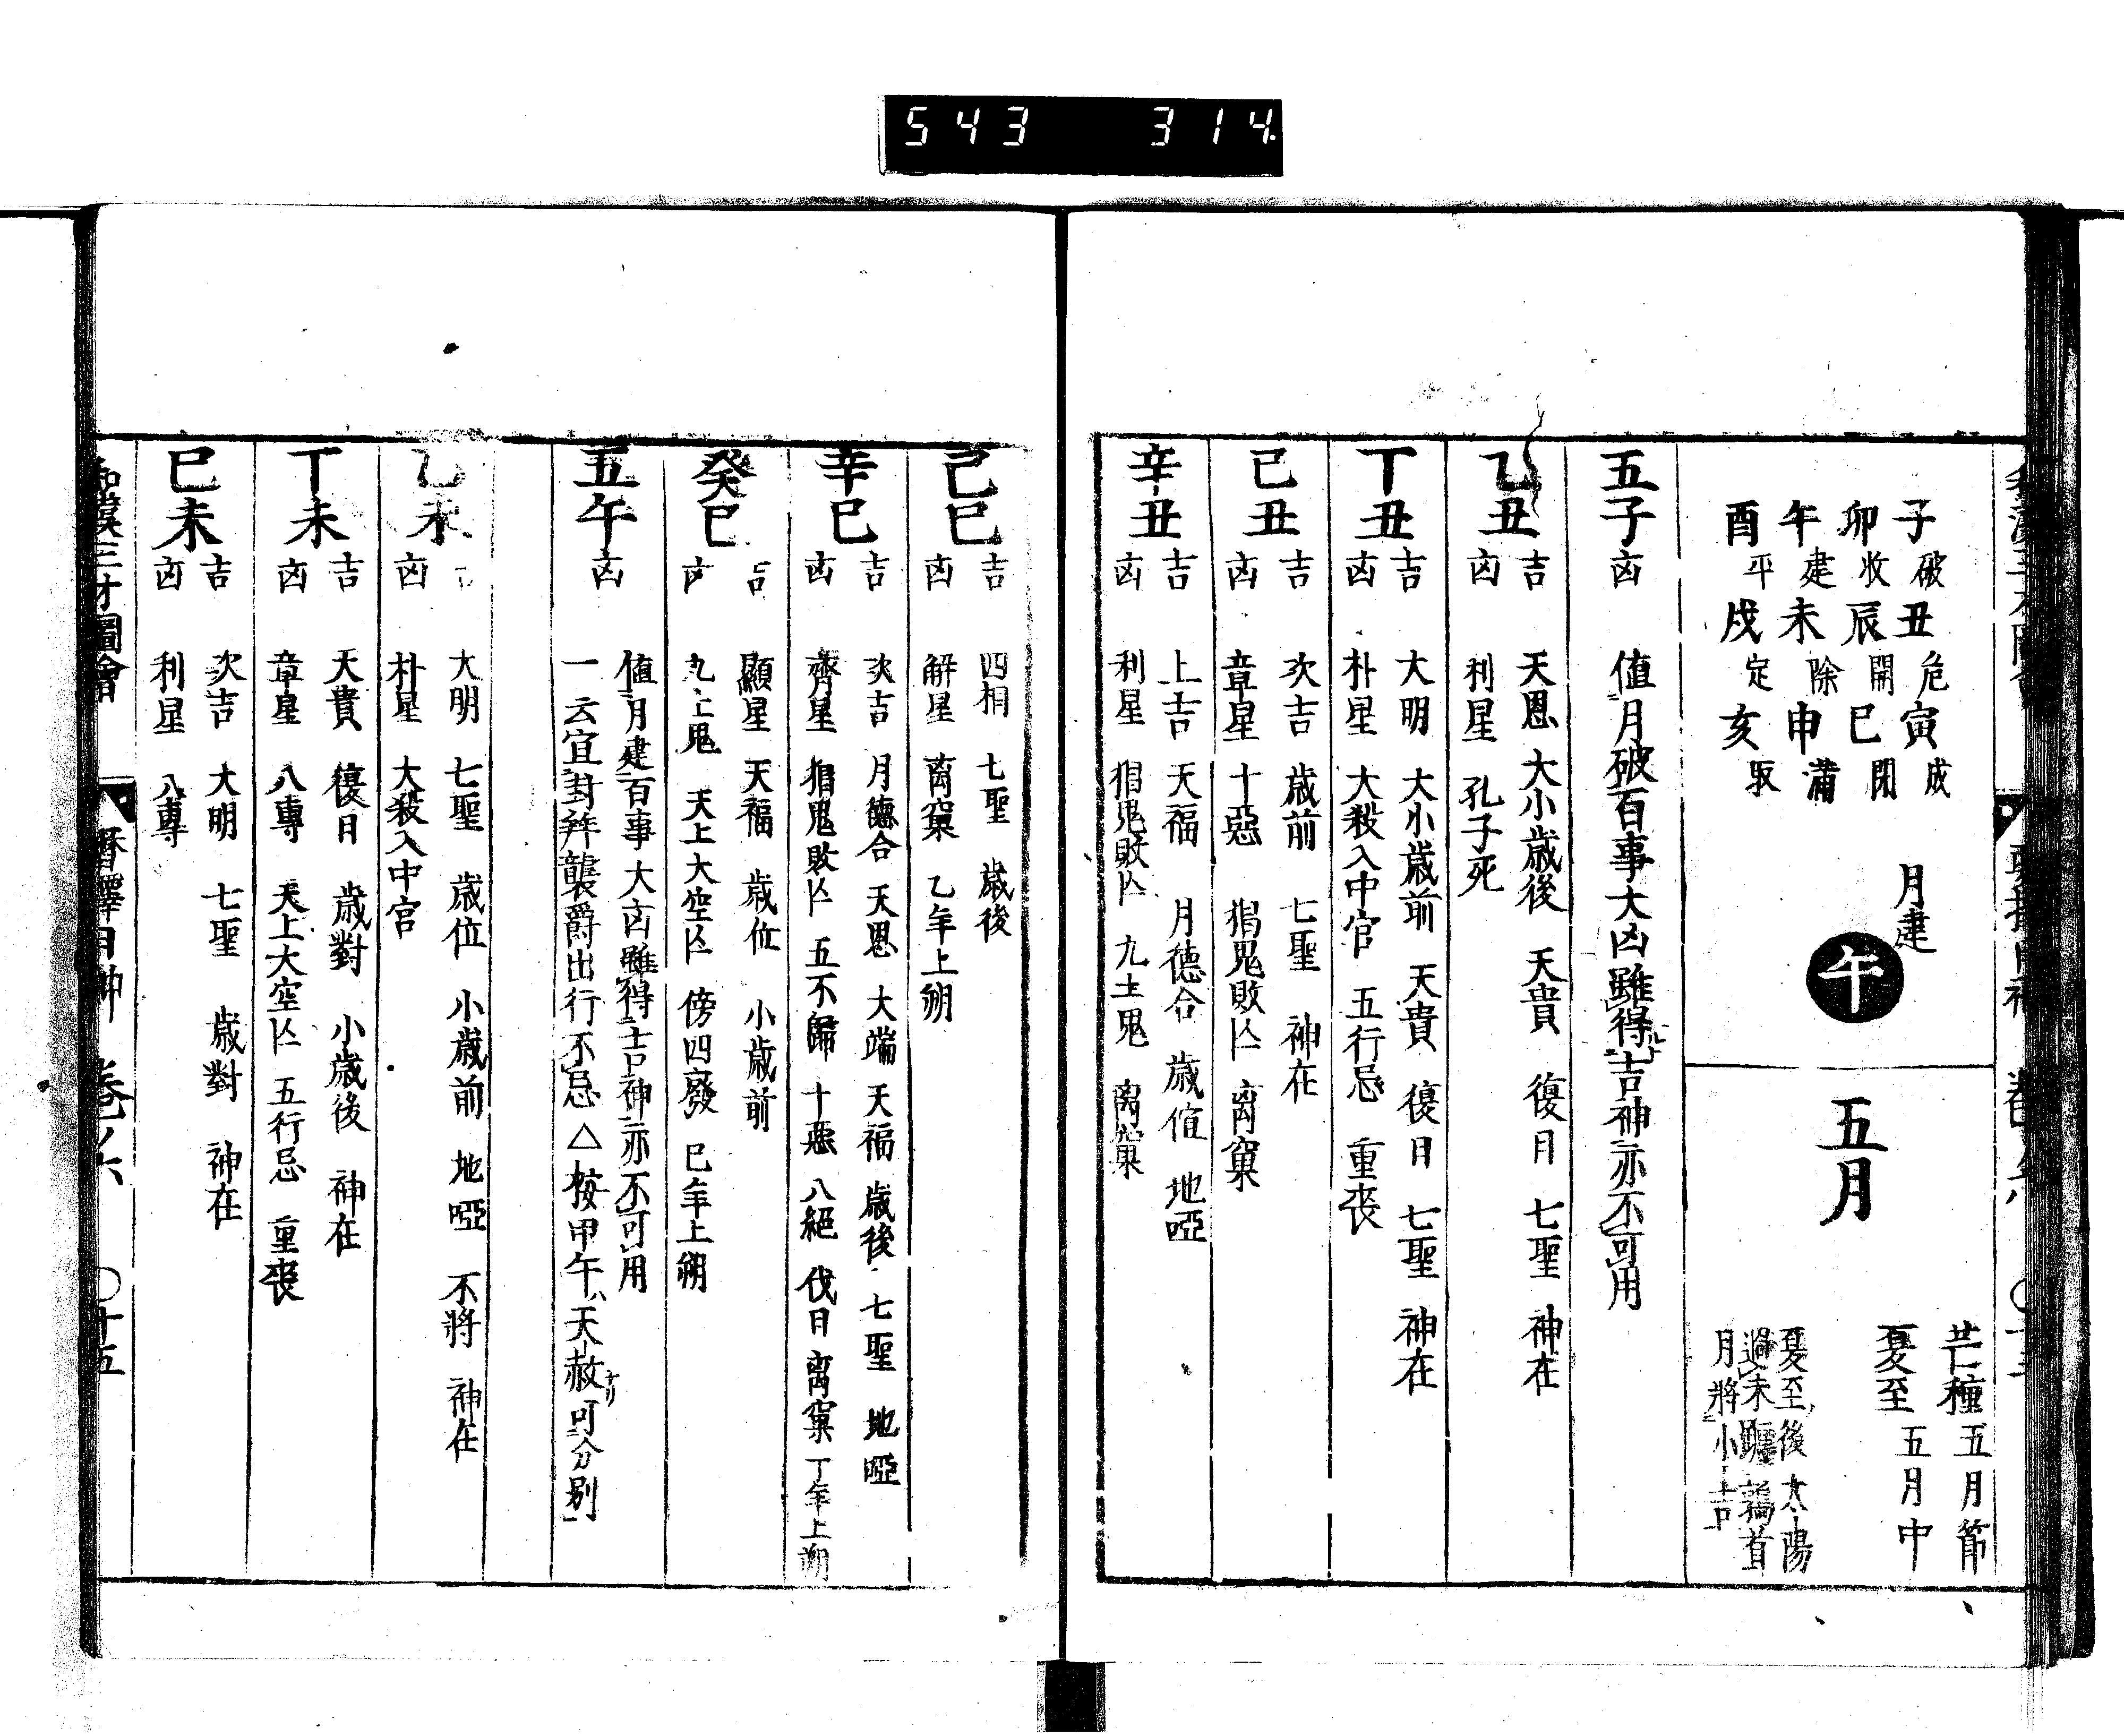 543 314
子破丑危寅成
卯收辰開巳閉
午建未除申滿
酉平戌定亥収
月建
午
五月
芒種五月節
夏至五月中
夏至後太陽
過未躔鶉首
月將小吉
五子
凶
値月破百事大凶雖得吉神亦不可用
乙丑
吉 天恩 大小歳後 天貴 復日 七聖 神在
凶 利星 孔子死
丁丑
吉 大明 大小歳前 天貴 復日 七聖 神在
凶 朴星 大殺入中宮 五行忌 重喪
己丑
吉 次吉 歳前 七聖 神在
凶 章星 十惡 猖鬼敗亾 离窠
辛丑
吉 上吉 天福 月徳合 歳値 地啞
凶 利星 猖鬼敗亾 九土鬼 离窠
己巳
吉 四相 七聖 歳後
凶 解星 离窠 乙年上朔
辛巳
吉 次吉 月徳合 天恩 大端 天福 歳後 七聖 地啞
凶 齊星 猖鬼敗亾 五不歸 十惡 八絕 伐日 离窠 丁年上朔
癸巳
吉 顯星 天福 歳位 小歳前
凶 九土鬼 天上大空亾 傍四廢 巳年上朔
五午
凶
値月建百事大凶雖得吉神亦不可用
一云宜封拜襲爵出行不忌△按甲午ハ天赦ナリ可分別
乙未
吉 大明 七聖 歳位 小歳前 地啞 不將 神在
凶 朴星 大殺入中宮
丁未
吉 天貴 復日 歳對 小歳後 神在
凶 章星 八專 天上大空亾 五行忌 重喪
己未
吉 次吉 大明 七聖 歳對 神在
凶 利星 八專
和漢三才圖會 曆擇日神 卷之六 〇十五